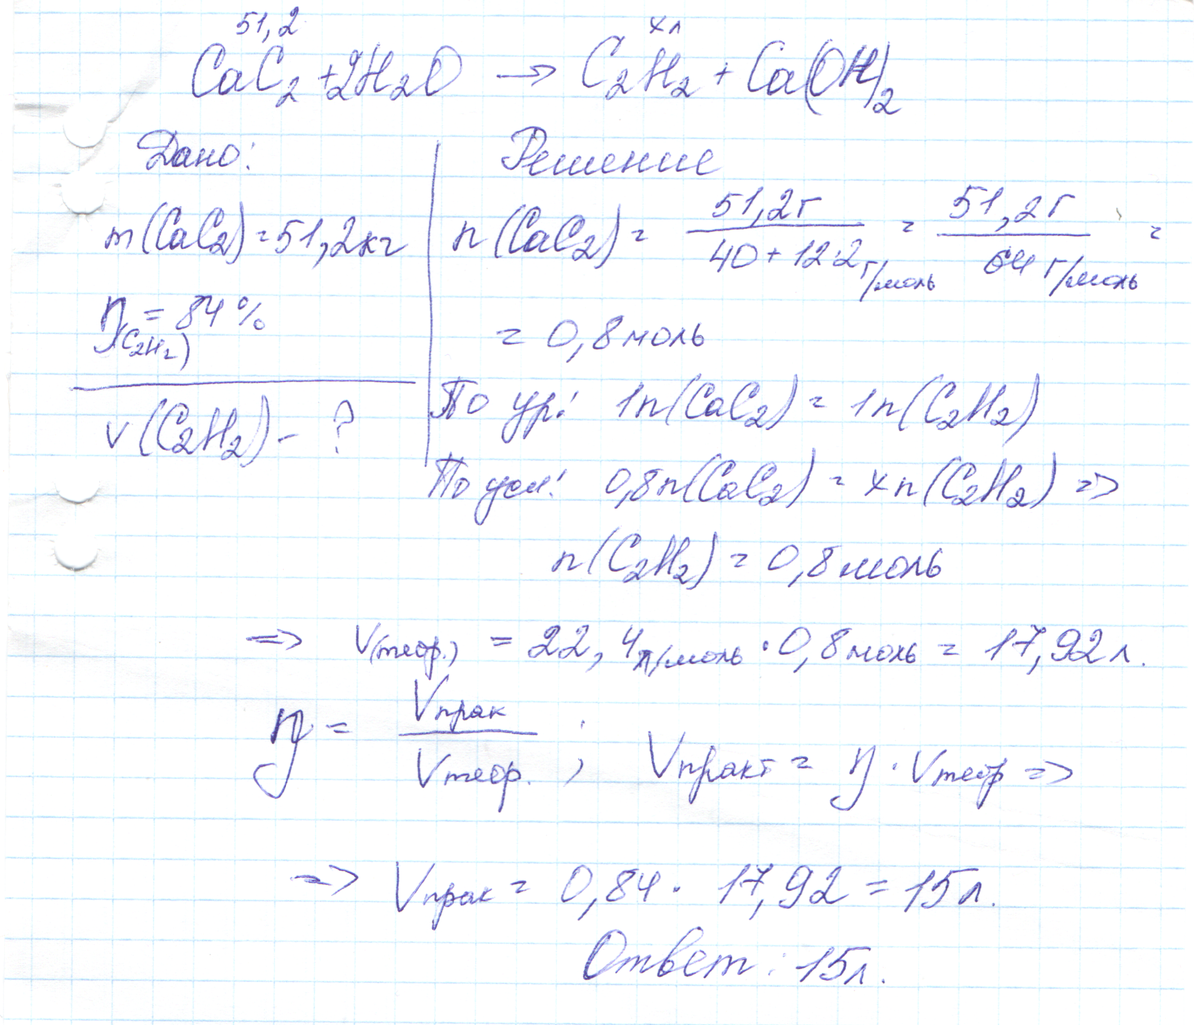 51,2 xл
CaC2 + 2H2O → C2H2 + Ca(OH)2
Дано:
m(CaC2) = 51,2кг
η(C2H2) = 84%
v(C2H2) - ?
Решение
n(CaC2) = 51,2г / 40 + 12·2 г/моль = 51,2г / 64 г/моль =
= 0,8 моль
По ур: 1n(CaC2) = 1n(C2H2)
По усл: 0,8n(CaC2) = xn(C2H2) =>
n(C2H2) = 0,8 моль
=> V(теор.) = 22,4 л/моль · 0,8 моль = 17,92 л.
η = Vпрак / Vтеор. ; Vпракт = η · Vтеор =>
=> Vпрак = 0,84 · 17,92 = 15 л.
Ответ: 15л.